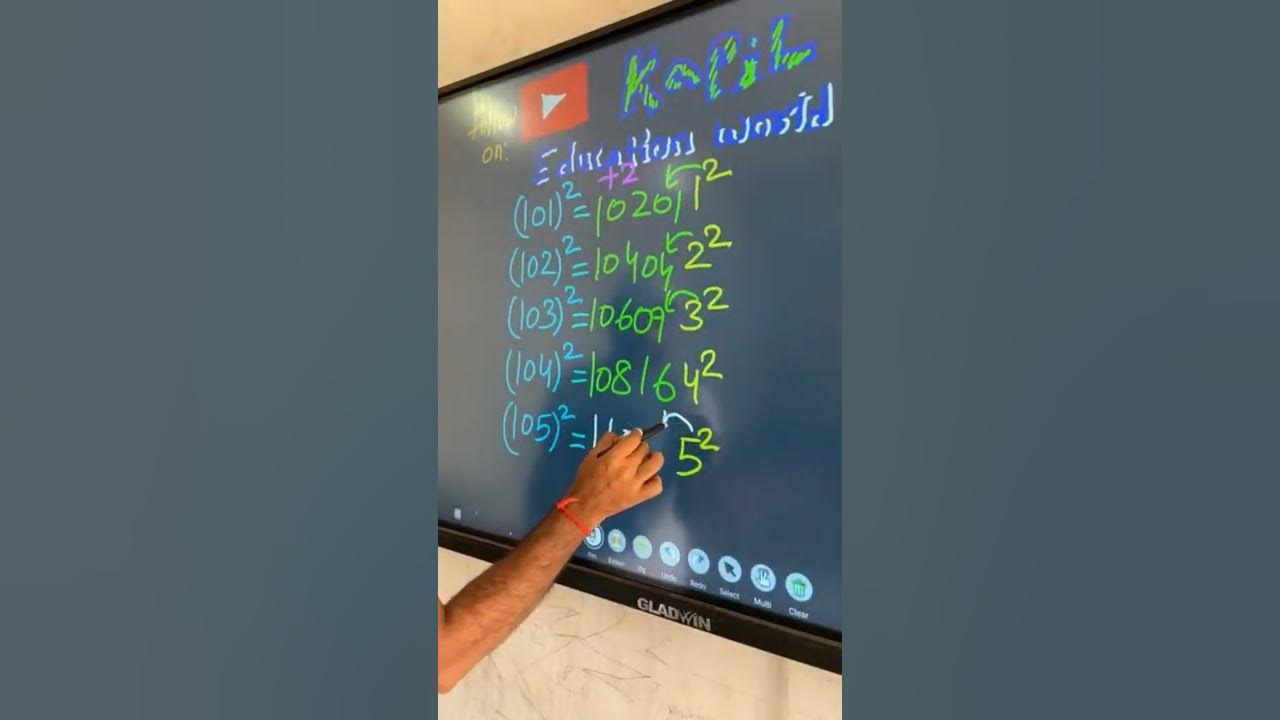 Follow on:
KaPiL
Education world
+2
(101)² = 10201 1²
(102)² = 10404 2²
(103)² = 10609 3²
(104)² = 10816 4²
(105)² = 11 5²
Pen Eraser Undo Redo Select Multi Clear
GLADWIN